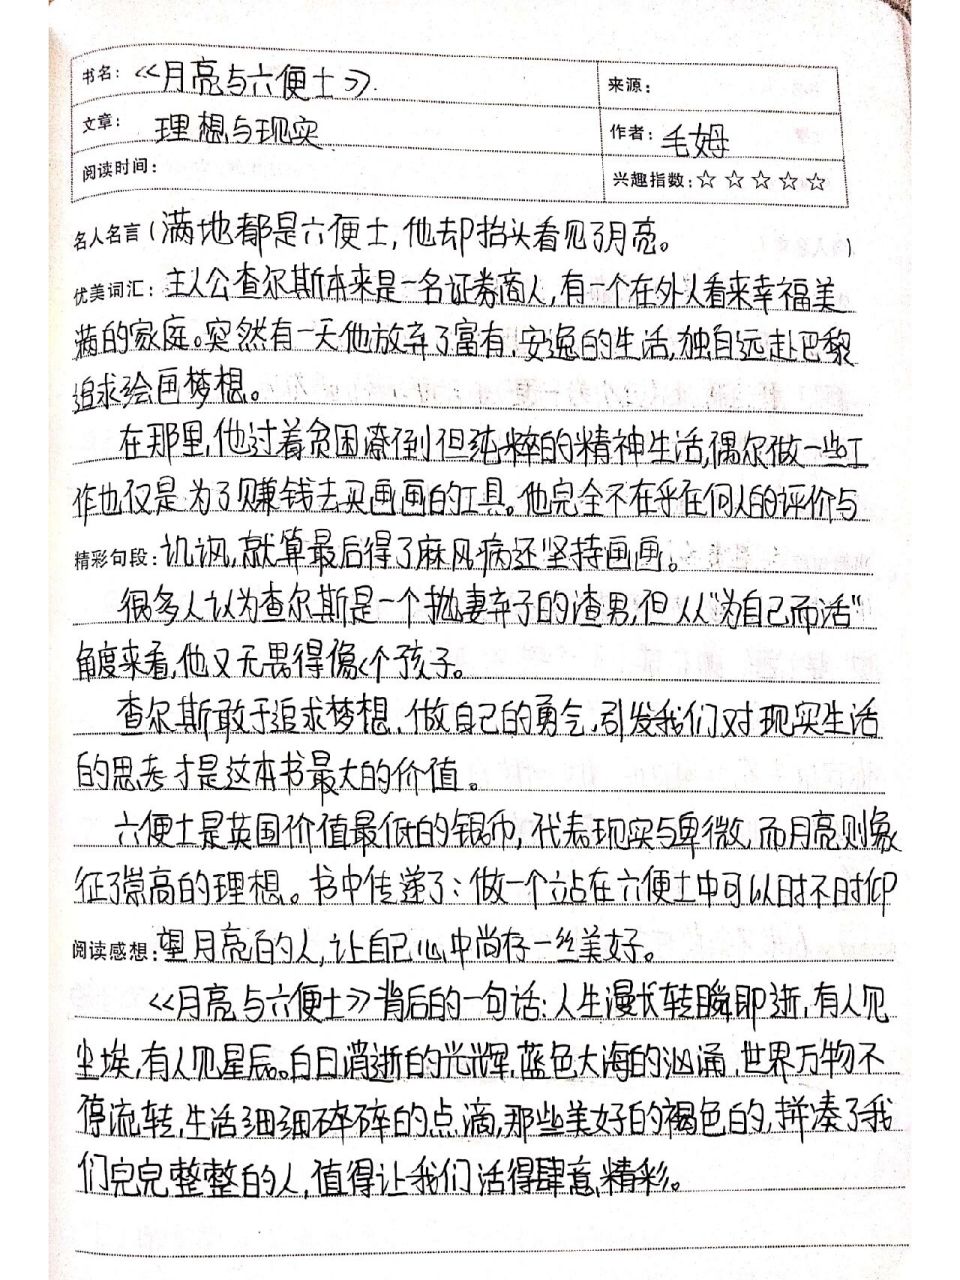 书名：《月亮与六便士》
来源：
文章：理想与现实
作者：毛姆
阅读时间：
兴趣指数：☆☆☆☆☆
名人名言（满地都是六便士，他却抬头看见了月亮。）
优美词汇：主人公查尔斯本来是一名证券商人，有一个在外人看来幸福美
满的家庭。突然有一天他放弃了富有、安逸的生活，独自远赴巴黎
追求绘画梦想。
在那里，他过着贫困潦倒但纯粹的精神生活，偶尔做一些工
作也仅是为了赚钱去买画画的工具。他完全不在乎任何人的评价与
精彩句段：讥讽，就算最后得了麻风病还坚持画画。
很多人认为查尔斯是一个抛妻弃子的渣男，但从“为自己而活”
角度来看，他又无畏得像个孩子。
查尔斯敢于追求梦想、做自己的勇气，引发我们对现实生活
的思考才是这本书最大的价值。
六便士是英国价值最低的银币，代表现实与卑微，而月亮则象
征了崇高的理想。书中传递了：做一个站在六便士中可以时不时仰
阅读感想：望月亮的人，让自己心中尚存一丝美好。
《月亮与六便士》背后的一句话：人生漫长转瞬即逝，有人见
尘埃，有人见星辰。白日消逝的光辉，蓝色大海的汹涌，世界万物不
停流转，生活细细碎碎的点滴，那些美好的褐色的，拼凑了我
们完完整整的人，值得让我们活得肆意精彩。